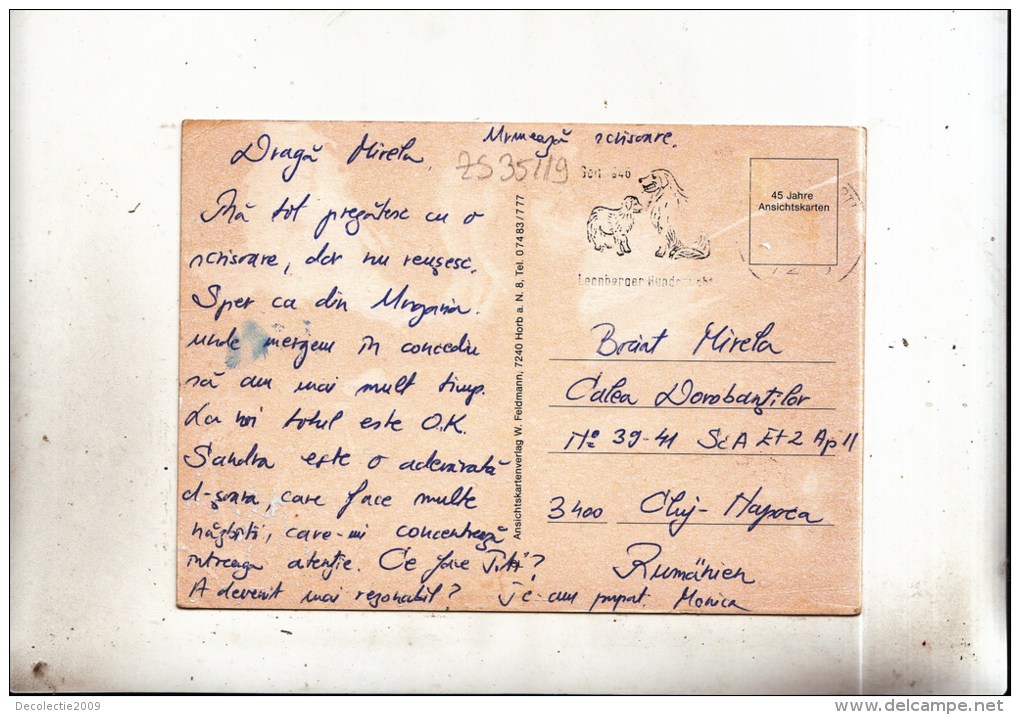 Urmează scrisoare.
Dragă Mirela,
ZS35119
Mă tot pregătesc cu o
scrisoare, dar nu reușesc.
Sper ca din Ungaria
unde mergem în concediu
să am mai mult timp.
La noi totul este O.K.
Sandra este o adevărată
d-șoara, care face multe
năzbâtii, care-mi concentrează
întreaga atenție. Ce face Titi?
A devenit mai rezonabil? Te-am pupat. Monica
Ansichtskartenverlag W. Feldmann, 7240 Horb a. N. 8, Tel. 07483/777
Leonberger Hunde
45 Jahre
Ansichtskarten
Mirela
Calea Dorobanților
Nº 39-41 ScA Et2 Ap11
3400 Cluj-Napoca
Rumänien
Decolectie2009
www.delcampe.net